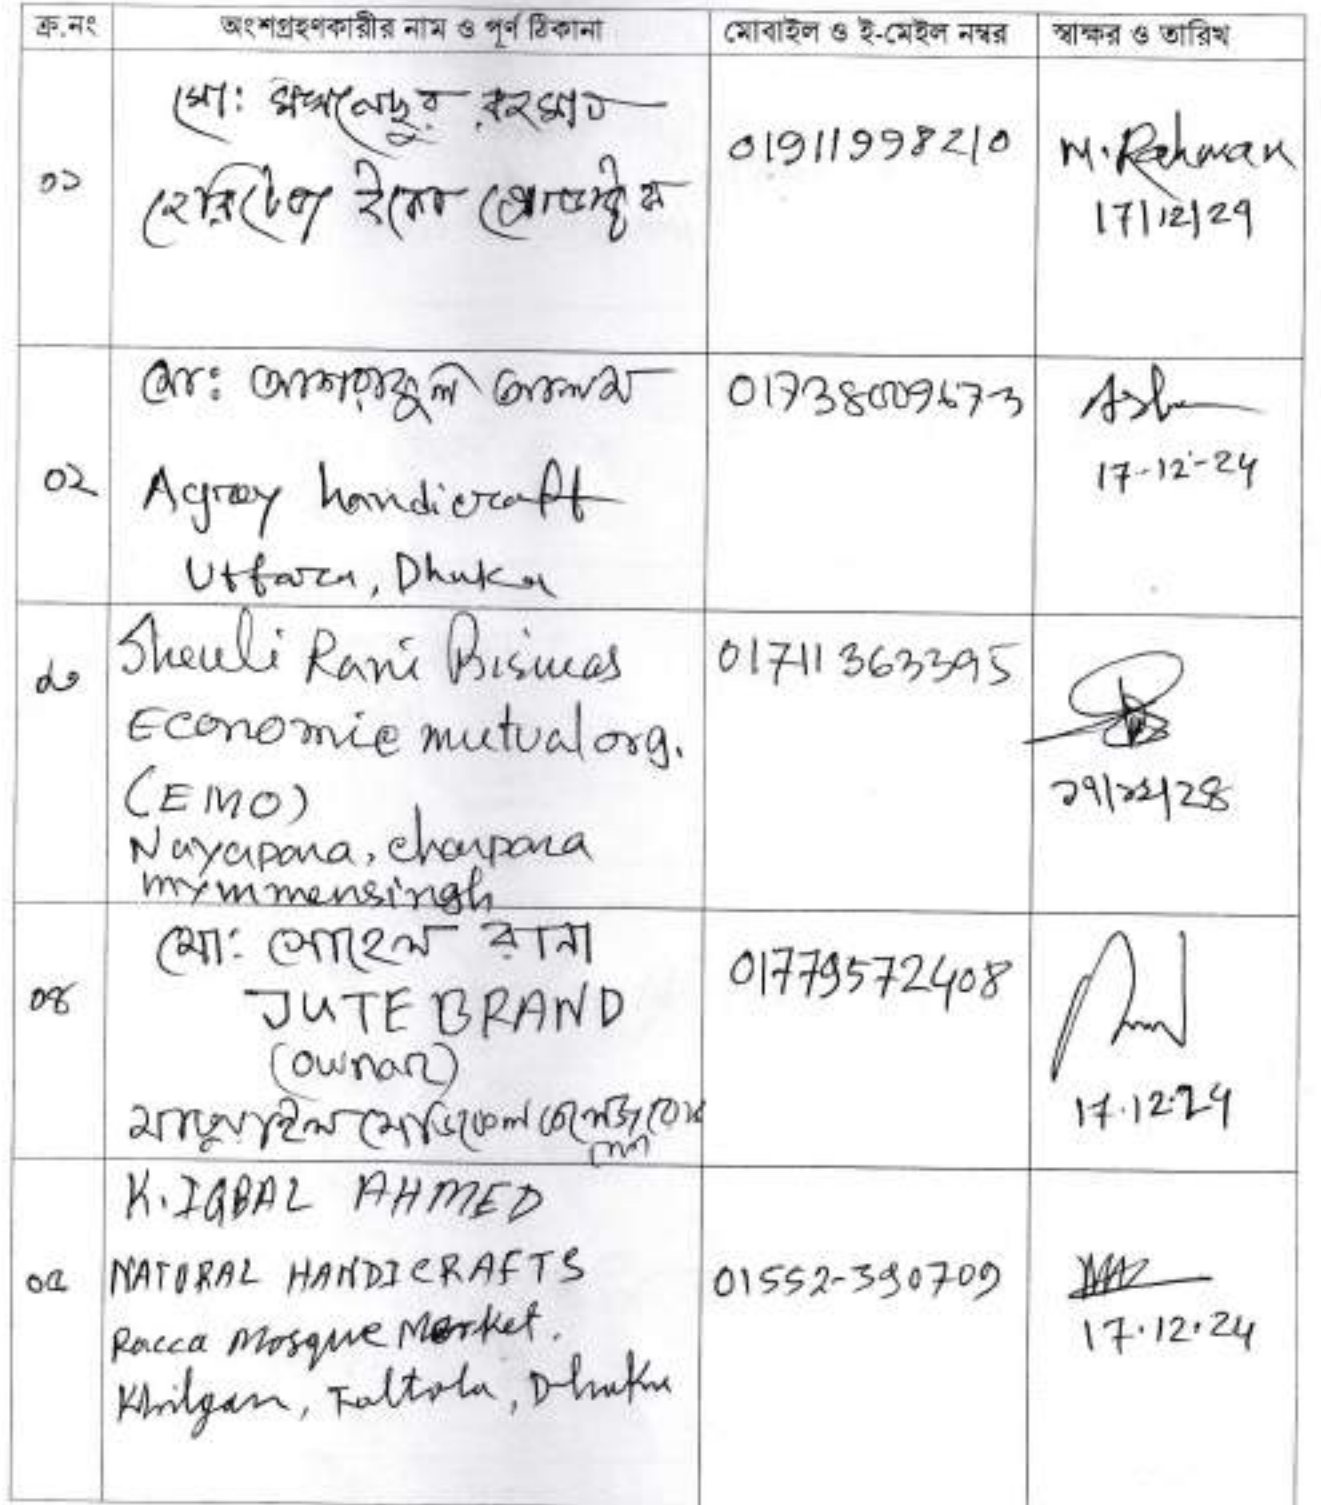 ক্র.নং অংশগ্রহণকারীর নাম ও পূর্ণ ঠিকানা মোবাইল ও ই-মেইল নম্বর স্বাক্ষর ও তারিখ
০১
মো: রহমান
হেরিটেজ ইকো প্রোডাক্টস
01911998210
M. Rahman
17/12/24
০২
মো: আশরাফুল আলম
Agroy handicraft
Uttara, Dhaka
01738009673
17-12-24
০৩
Sheuli Rani Biswas
Economic mutual org.
(EMO)
Nayapara, charpara
mymmensingh
01711363395
১৭/১২/২৪
০৪
মো: সোহেল রানা
JUTE BRAND
(ownar)
মাতুয়াইল মেডিকেল
01779572408
17.12.24
০৫
K. IQBAL AHMED
NATURAL HANDICRAFTS
Pacca Mosque Market.
Khilgan, Taltola, Dhaka
01552-390709
17.12.24